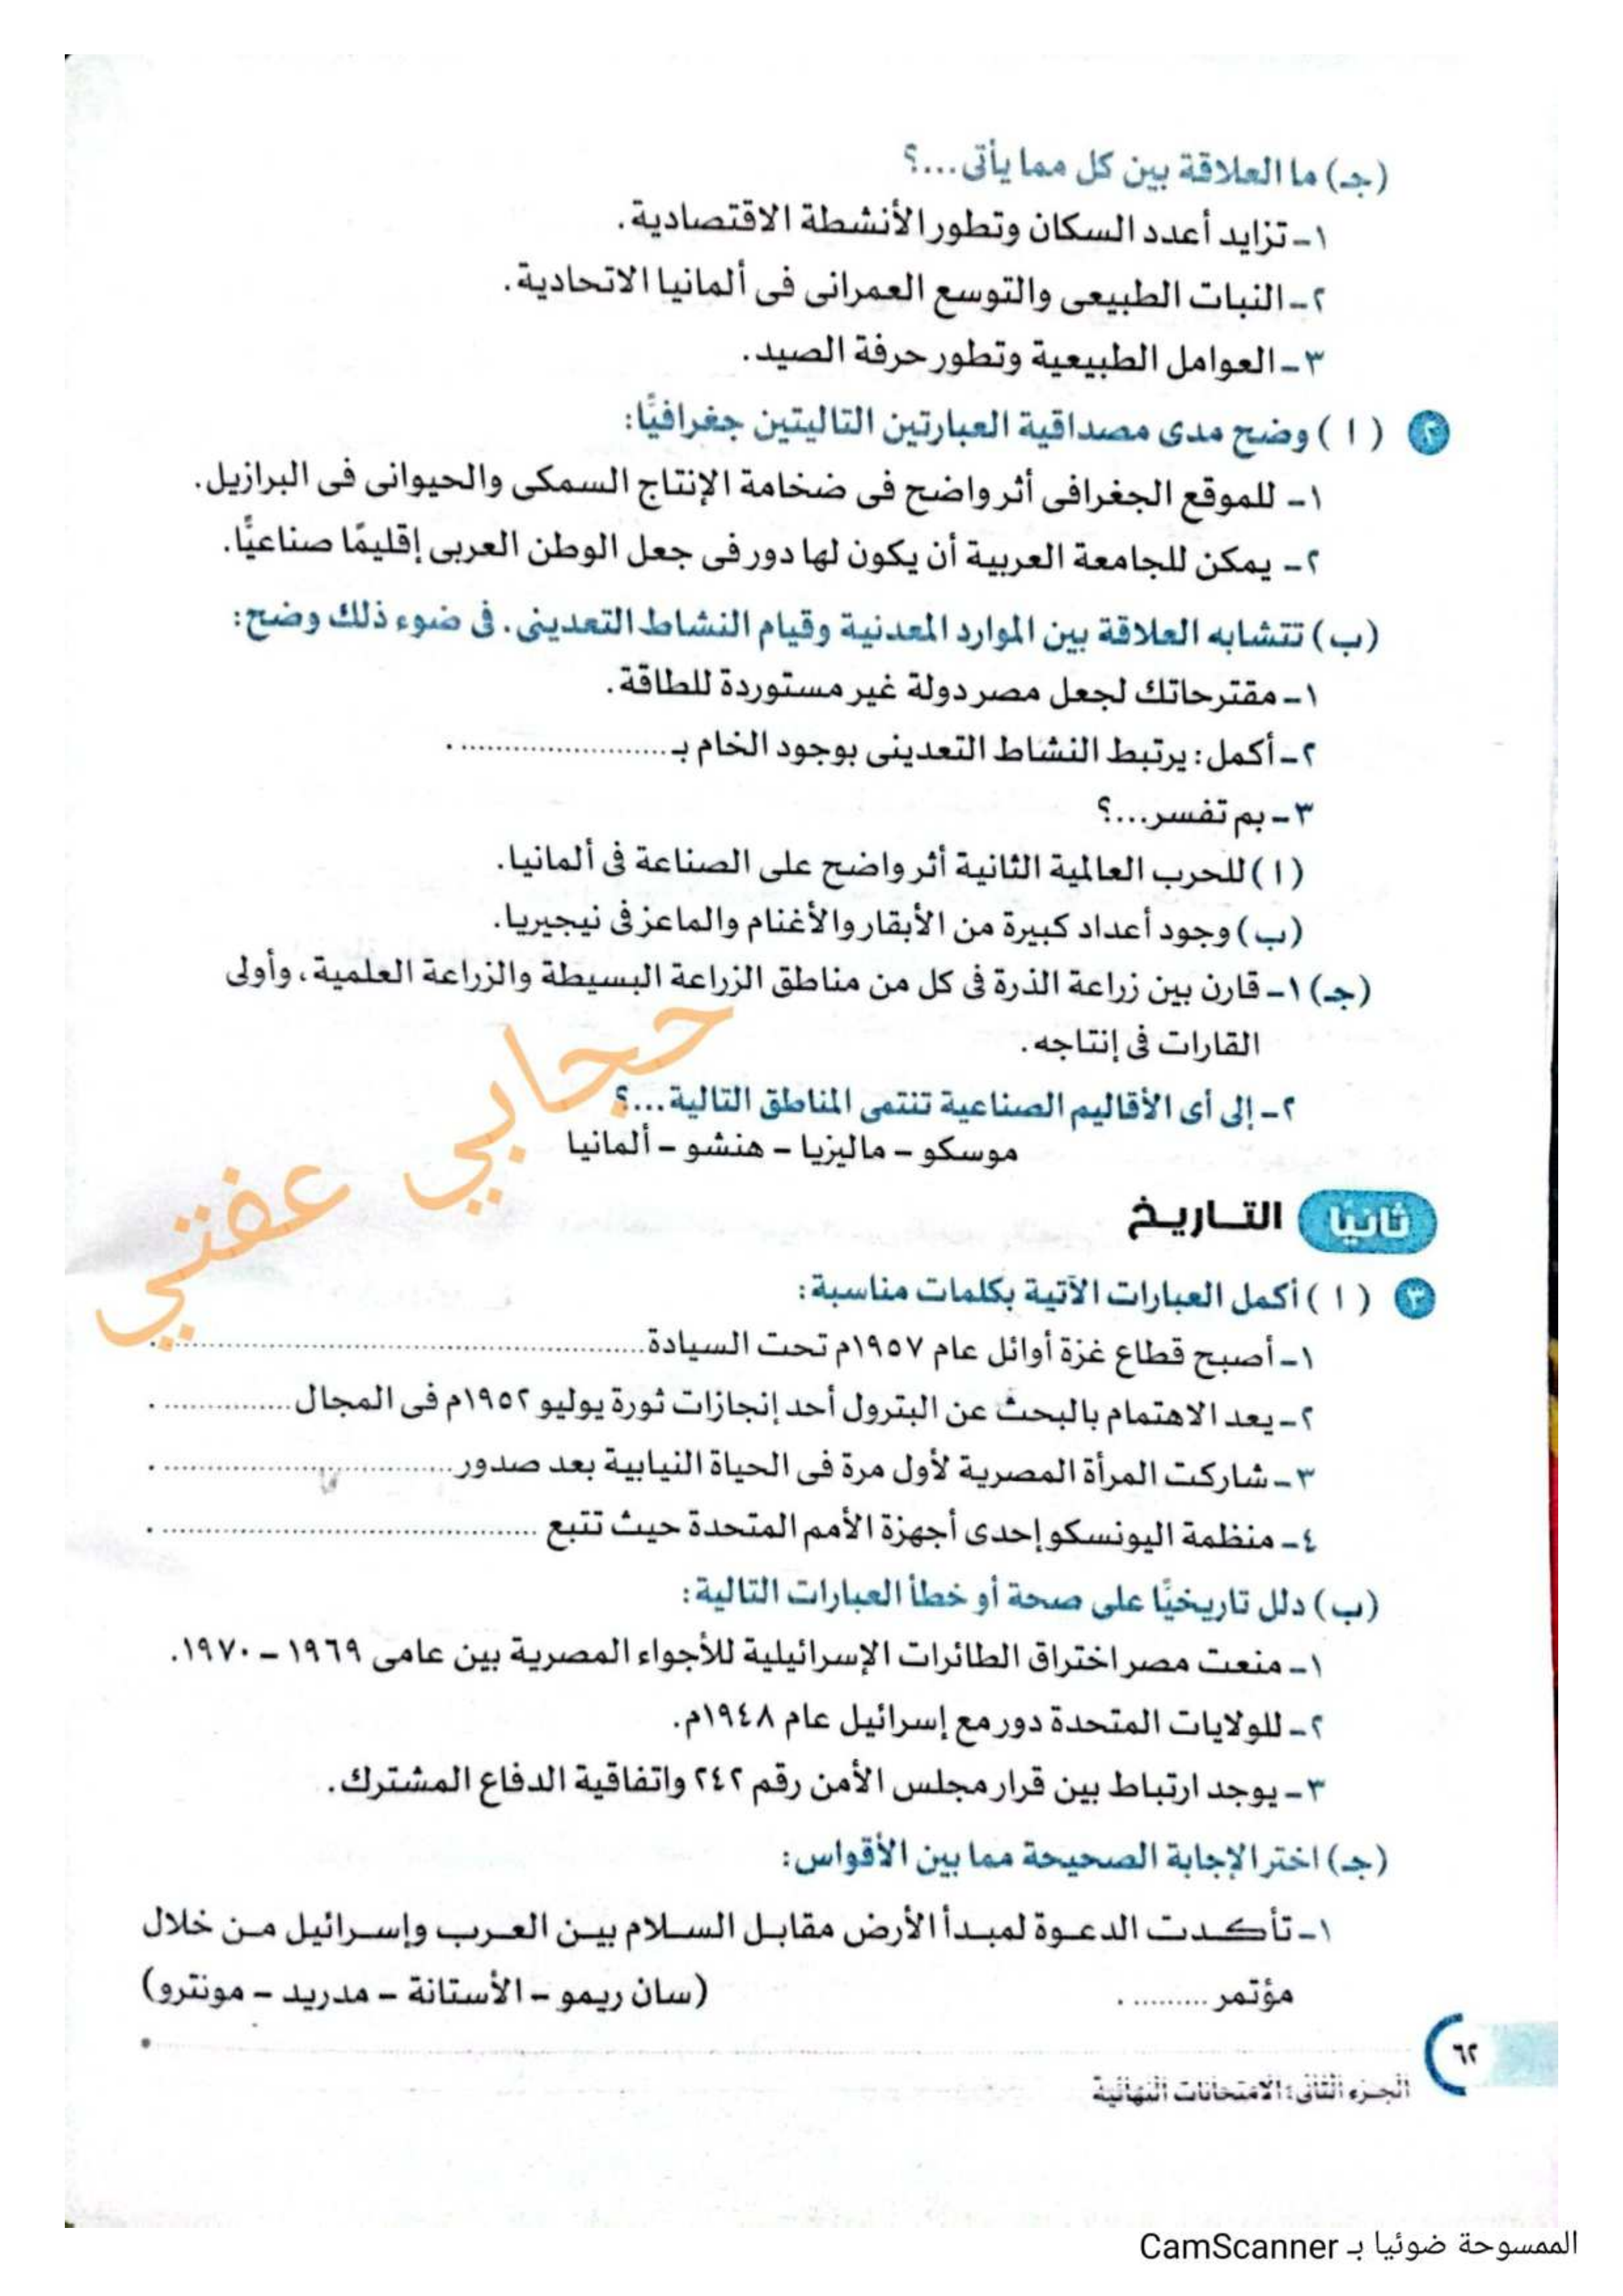 (جـ) ما العلاقة بين كل مما يأتى...؟
١- تزايد أعدد السكان وتطور الأنشطة الاقتصادية.
٢- النبات الطبيعى والتوسع العمرانى فى ألمانيا الاتحادية.
٣- العوامل الطبيعية وتطور حرفة الصيد.
٢ ( ا ) وضح مدى مصداقية العبارتين التاليتين جغرافيًا:
١- للموقع الجغرافى أثر واضح فى ضخامة الإنتاج السمكى والحيوانى فى البرازيل.
٢- يمكن للجامعة العربية أن يكون لها دور فى جعل الوطن العربى إقليمًا صناعيًّا.
(ب) تتشابه العلاقة بين الموارد المعدنية وقيام النشاط التعدينى. فى ضوء ذلك وضح:
١- مقترحاتك لجعل مصر دولة غير مستوردة للطاقة.
٢- أكمل: يرتبط النشاط التعدينى بوجود الخام بـ ...................... .
٣- بم تفسر...؟
( ا ) للحرب العالمية الثانية أثر واضح على الصناعة فى ألمانيا.
(ب) وجود أعداد كبيرة من الأبقار والأغنام والماعز فى نيجيريا.
(جـ) ١- قارن بين زراعة الذرة فى كل من مناطق الزراعة البسيطة والزراعة العلمية، وأولى
القارات فى إنتاجه.
٢- إلى أى الأقاليم الصناعية تنتمى المناطق التالية...؟
موسكو - ماليزيا - هنشو - ألمانيا
حجابي عفتي
ثانيًا التـاريـخ
٣ ( ا ) أكمل العبارات الآتية بكلمات مناسبة:
١- أصبح قطاع غزة أوائل عام ١٩٥٧م تحت السيادة ...................... .
٢- يعد الاهتمام بالبحث عن البترول أحد إنجازات ثورة يوليو ١٩٥٢م فى المجال .............. .
٣- شاركت المرأة المصرية لأول مرة فى الحياة النيابية بعد صدور ...................... .
٤- منظمة اليونسكو إحدى أجهزة الأمم المتحدة حيث تتبع ...................... .
(ب) دلل تاريخيًّا على صحة أو خطأ العبارات التالية:
١- منعت مصر اختراق الطائرات الإسرائيلية للأجواء المصرية بين عامى ١٩٦٩ - ١٩٧٠.
٢- للولايات المتحدة دور مع إسرائيل عام ١٩٤٨م.
٣- يوجد ارتباط بين قرار مجلس الأمن رقم ٢٤٢ واتفاقية الدفاع المشترك.
(جـ) اختر الإجابة الصحيحة مما بين الأقواس:
١- تأكـدت الدعـوة لمبـدأ الأرض مقابـل السـلام بيـن العـرب وإسـرائيل مـن خلال
مؤتمر ......... . (سان ريمو - الأستانة - مدريد - مونترو)
٦٢
الجزء الثانى: الامتحانات النهائية
الممسوحة ضوئيا بـ CamScanner